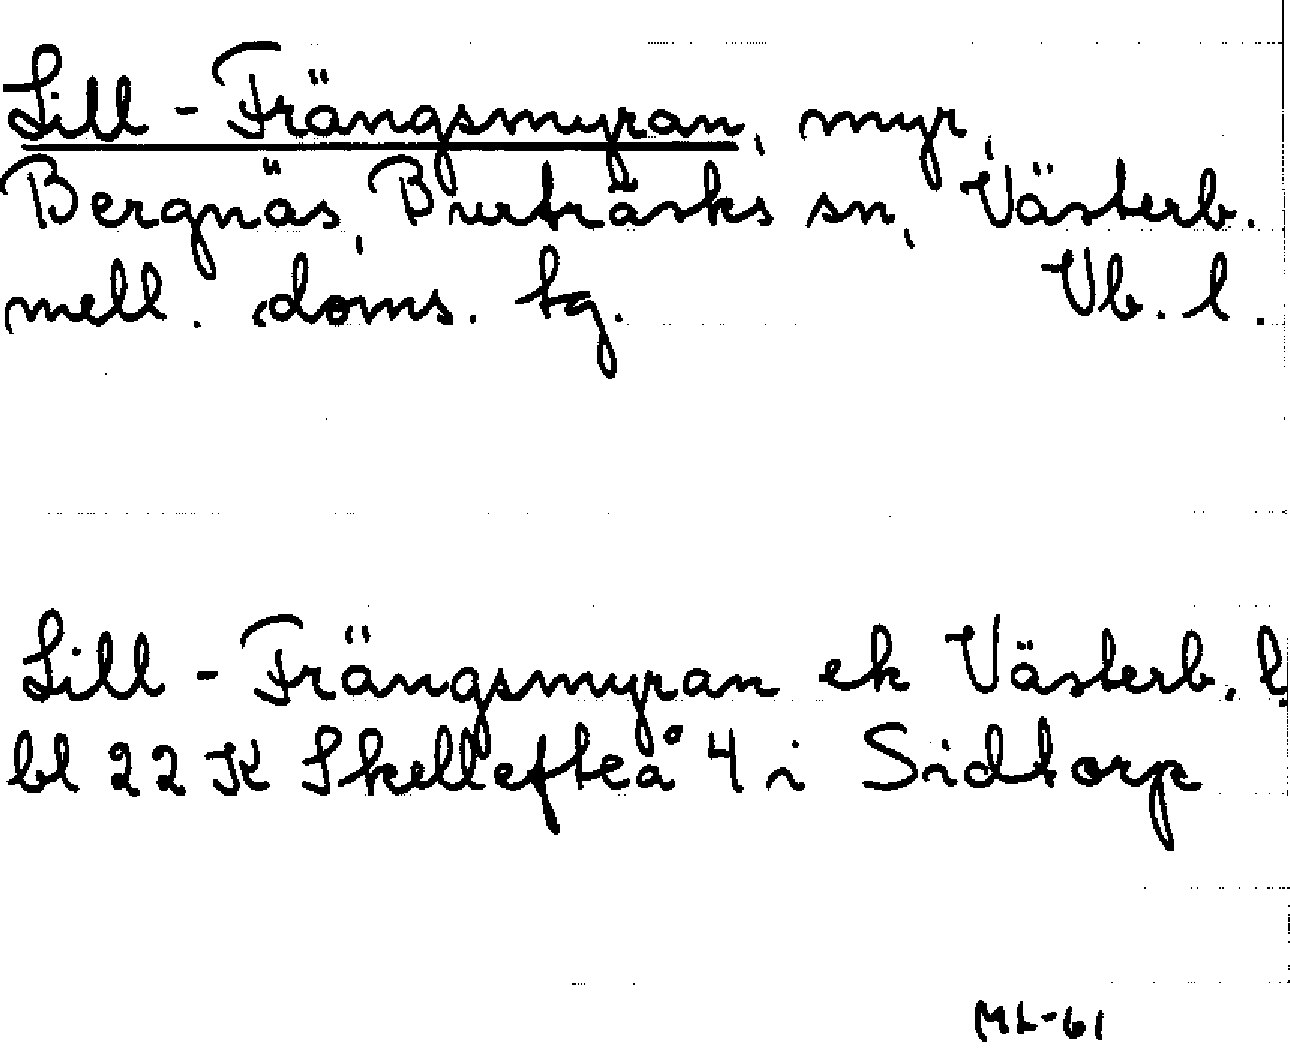 Lill-Frängsmyran, myr,
Bergnäs, Burträsks sn, Västerb.
mell. doms. tg. Vb. l.
Lill-Frängsmyran ek Västerb. l.
bl 22 K Skellefteå 4 i Sidtorp
ML-61